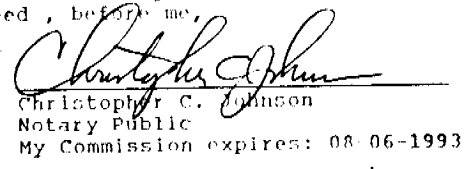 ed , before me,
Christopher C. Johnson
Christopher C. Johnson
Notary Public
My Commission expires: 08-06-1993